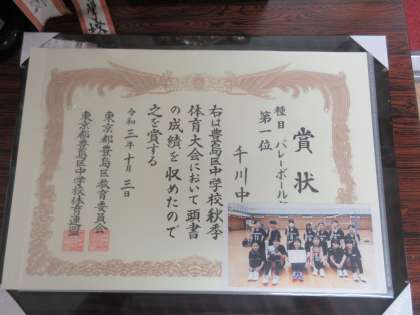 賞状
種目 バレーボール
第一位
千川中
右は豊島区中学校秋季
体育大会において頭書
の成績を収めたので
之を賞する
令和三年十月三日
東京都豊島区教育委員会
東京都豊島区中学校体育連盟